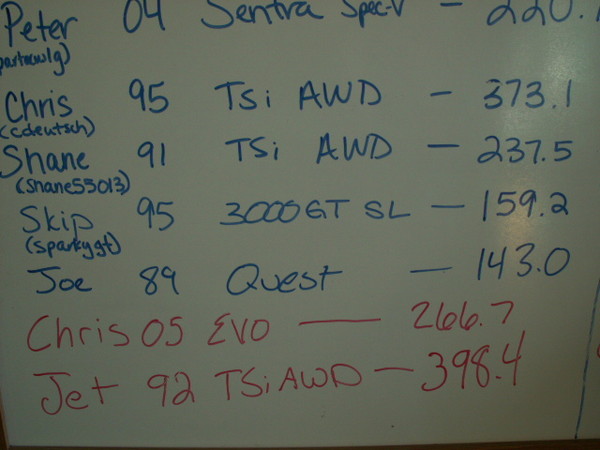 Peter 04 Sentra Spec-V - 220.
Chris 95 TSi AWD - 373.1
(cdeutsch)
Shane 91 TSi AWD - 237.5
(Shane55013)
Skip 95 3000GT SL - 159.2
(sparkygt)
Joe 89 Quest - 143.0
Chris 05 EVO - 266.7
Jet 92 TSi AWD - 398.4